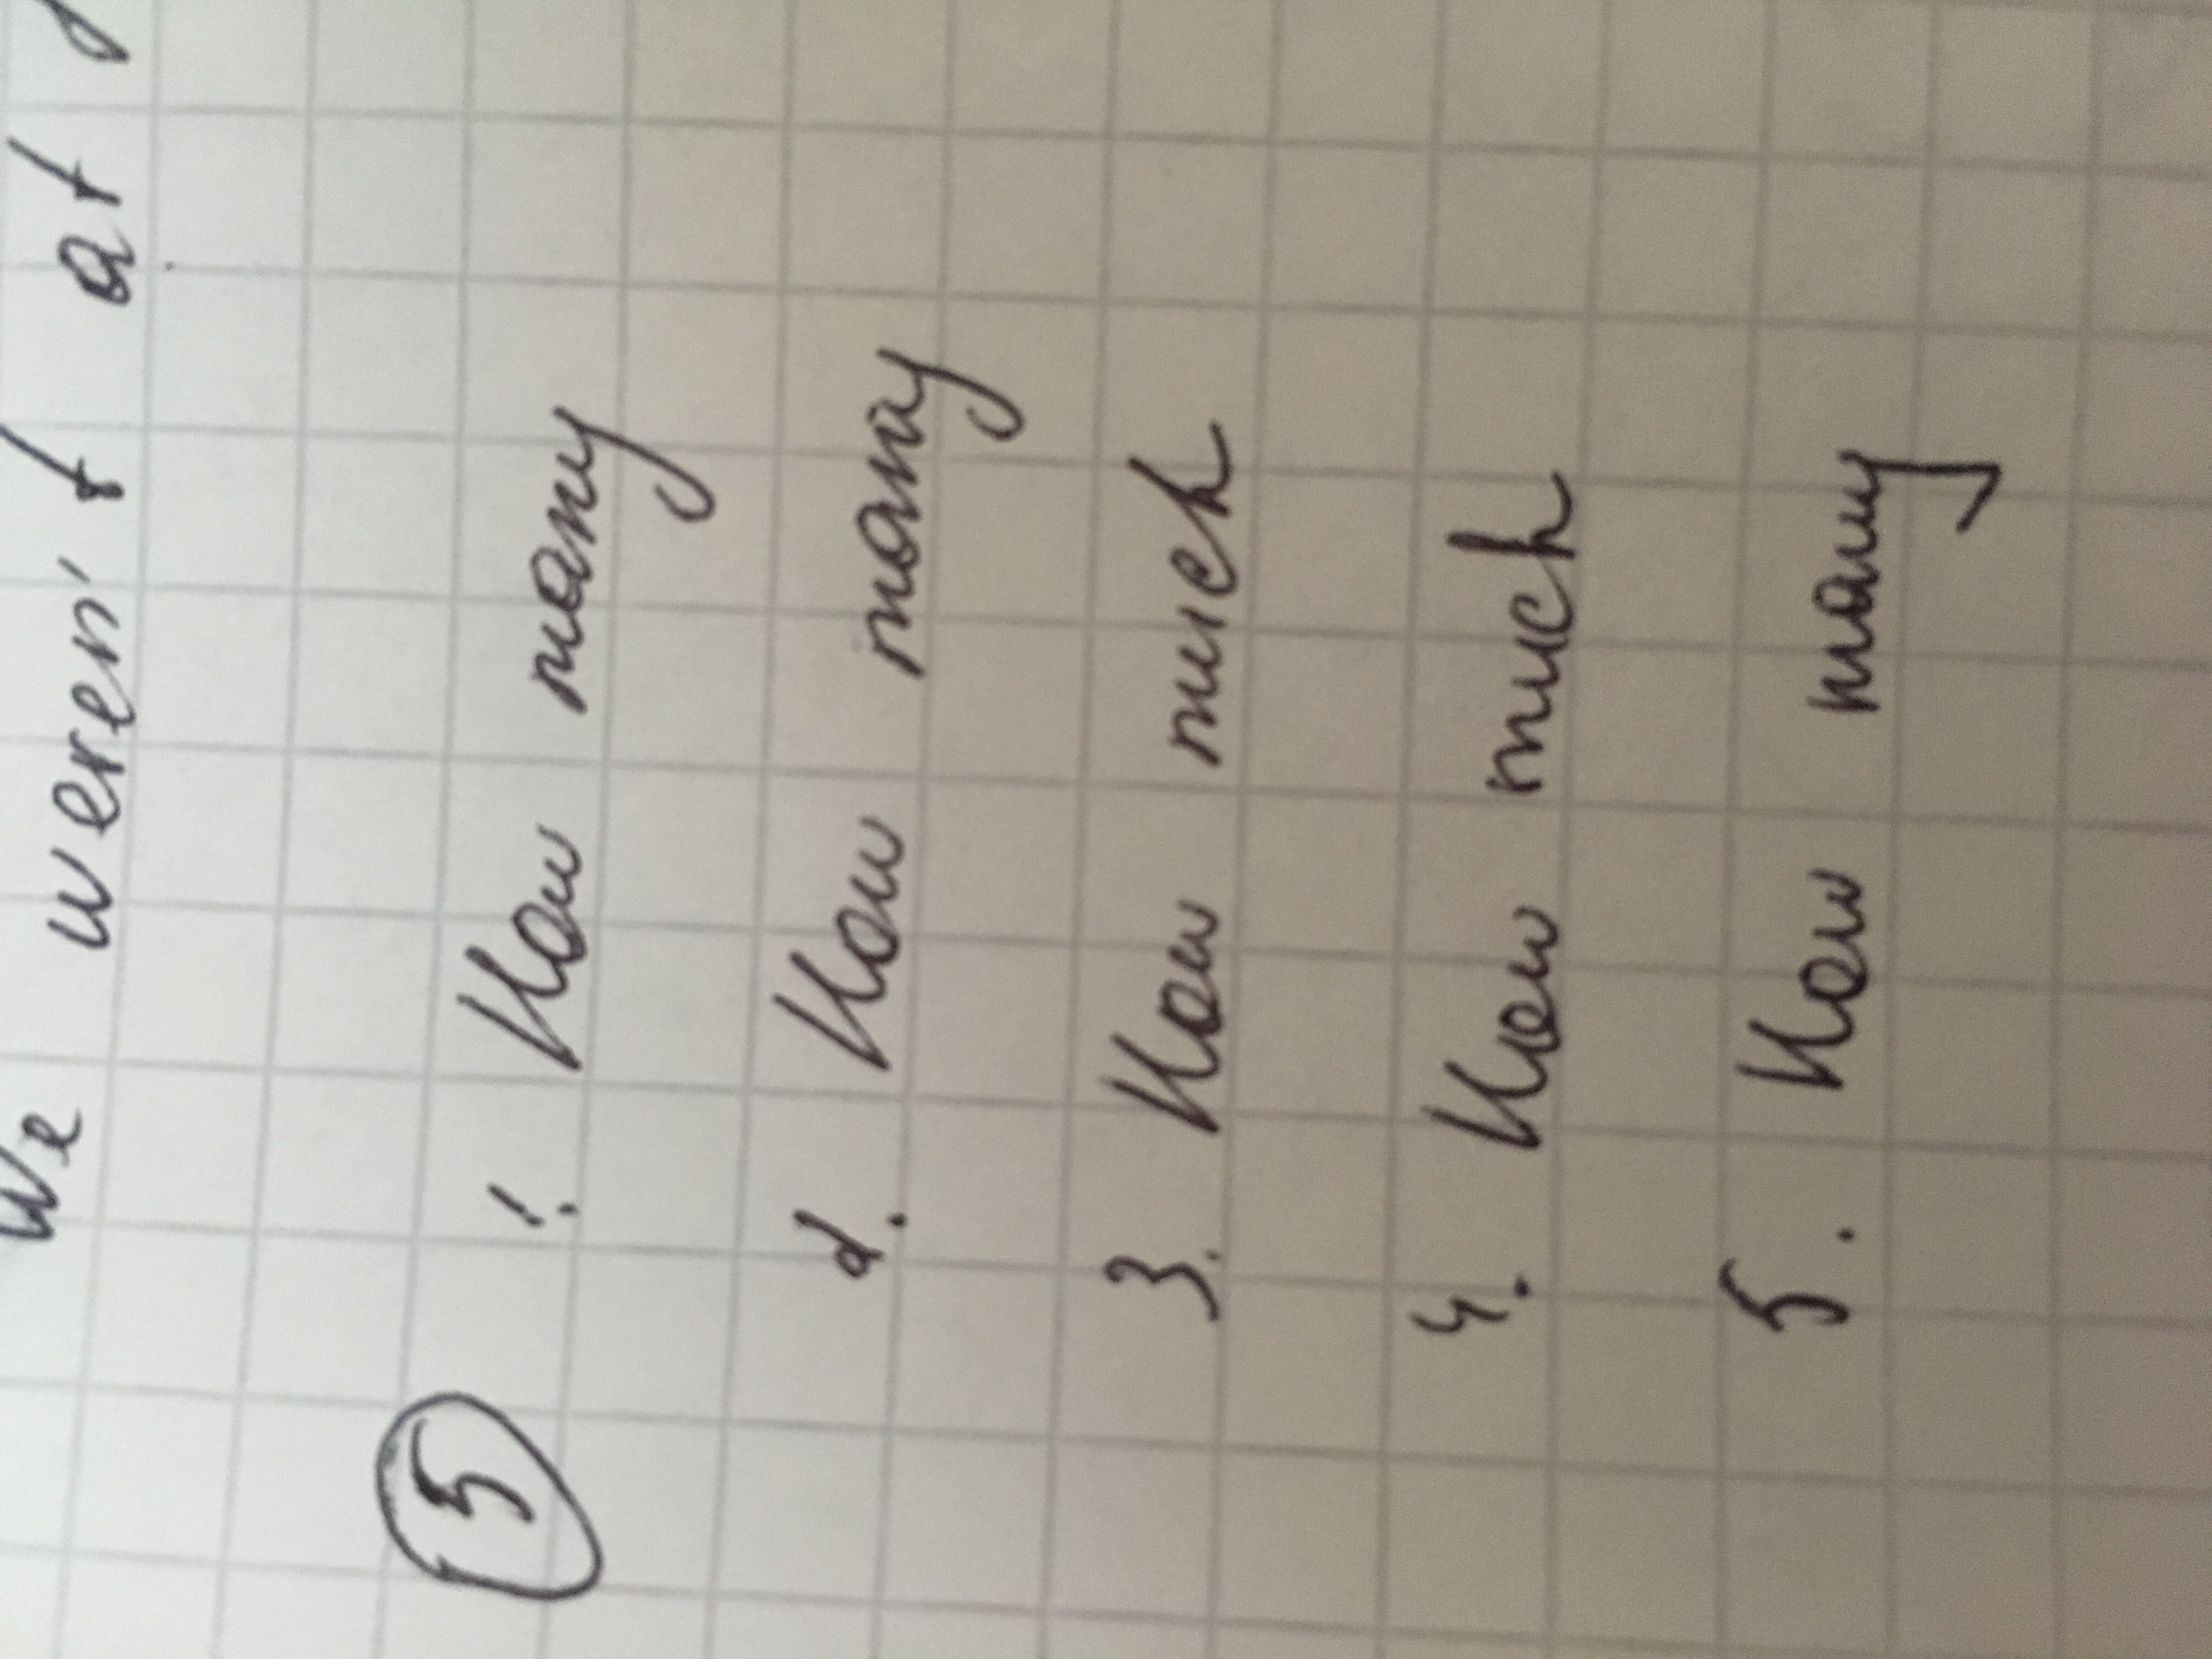 We weren't at
5 1. How many
2. How many
3. How much
4. How much
5. How many